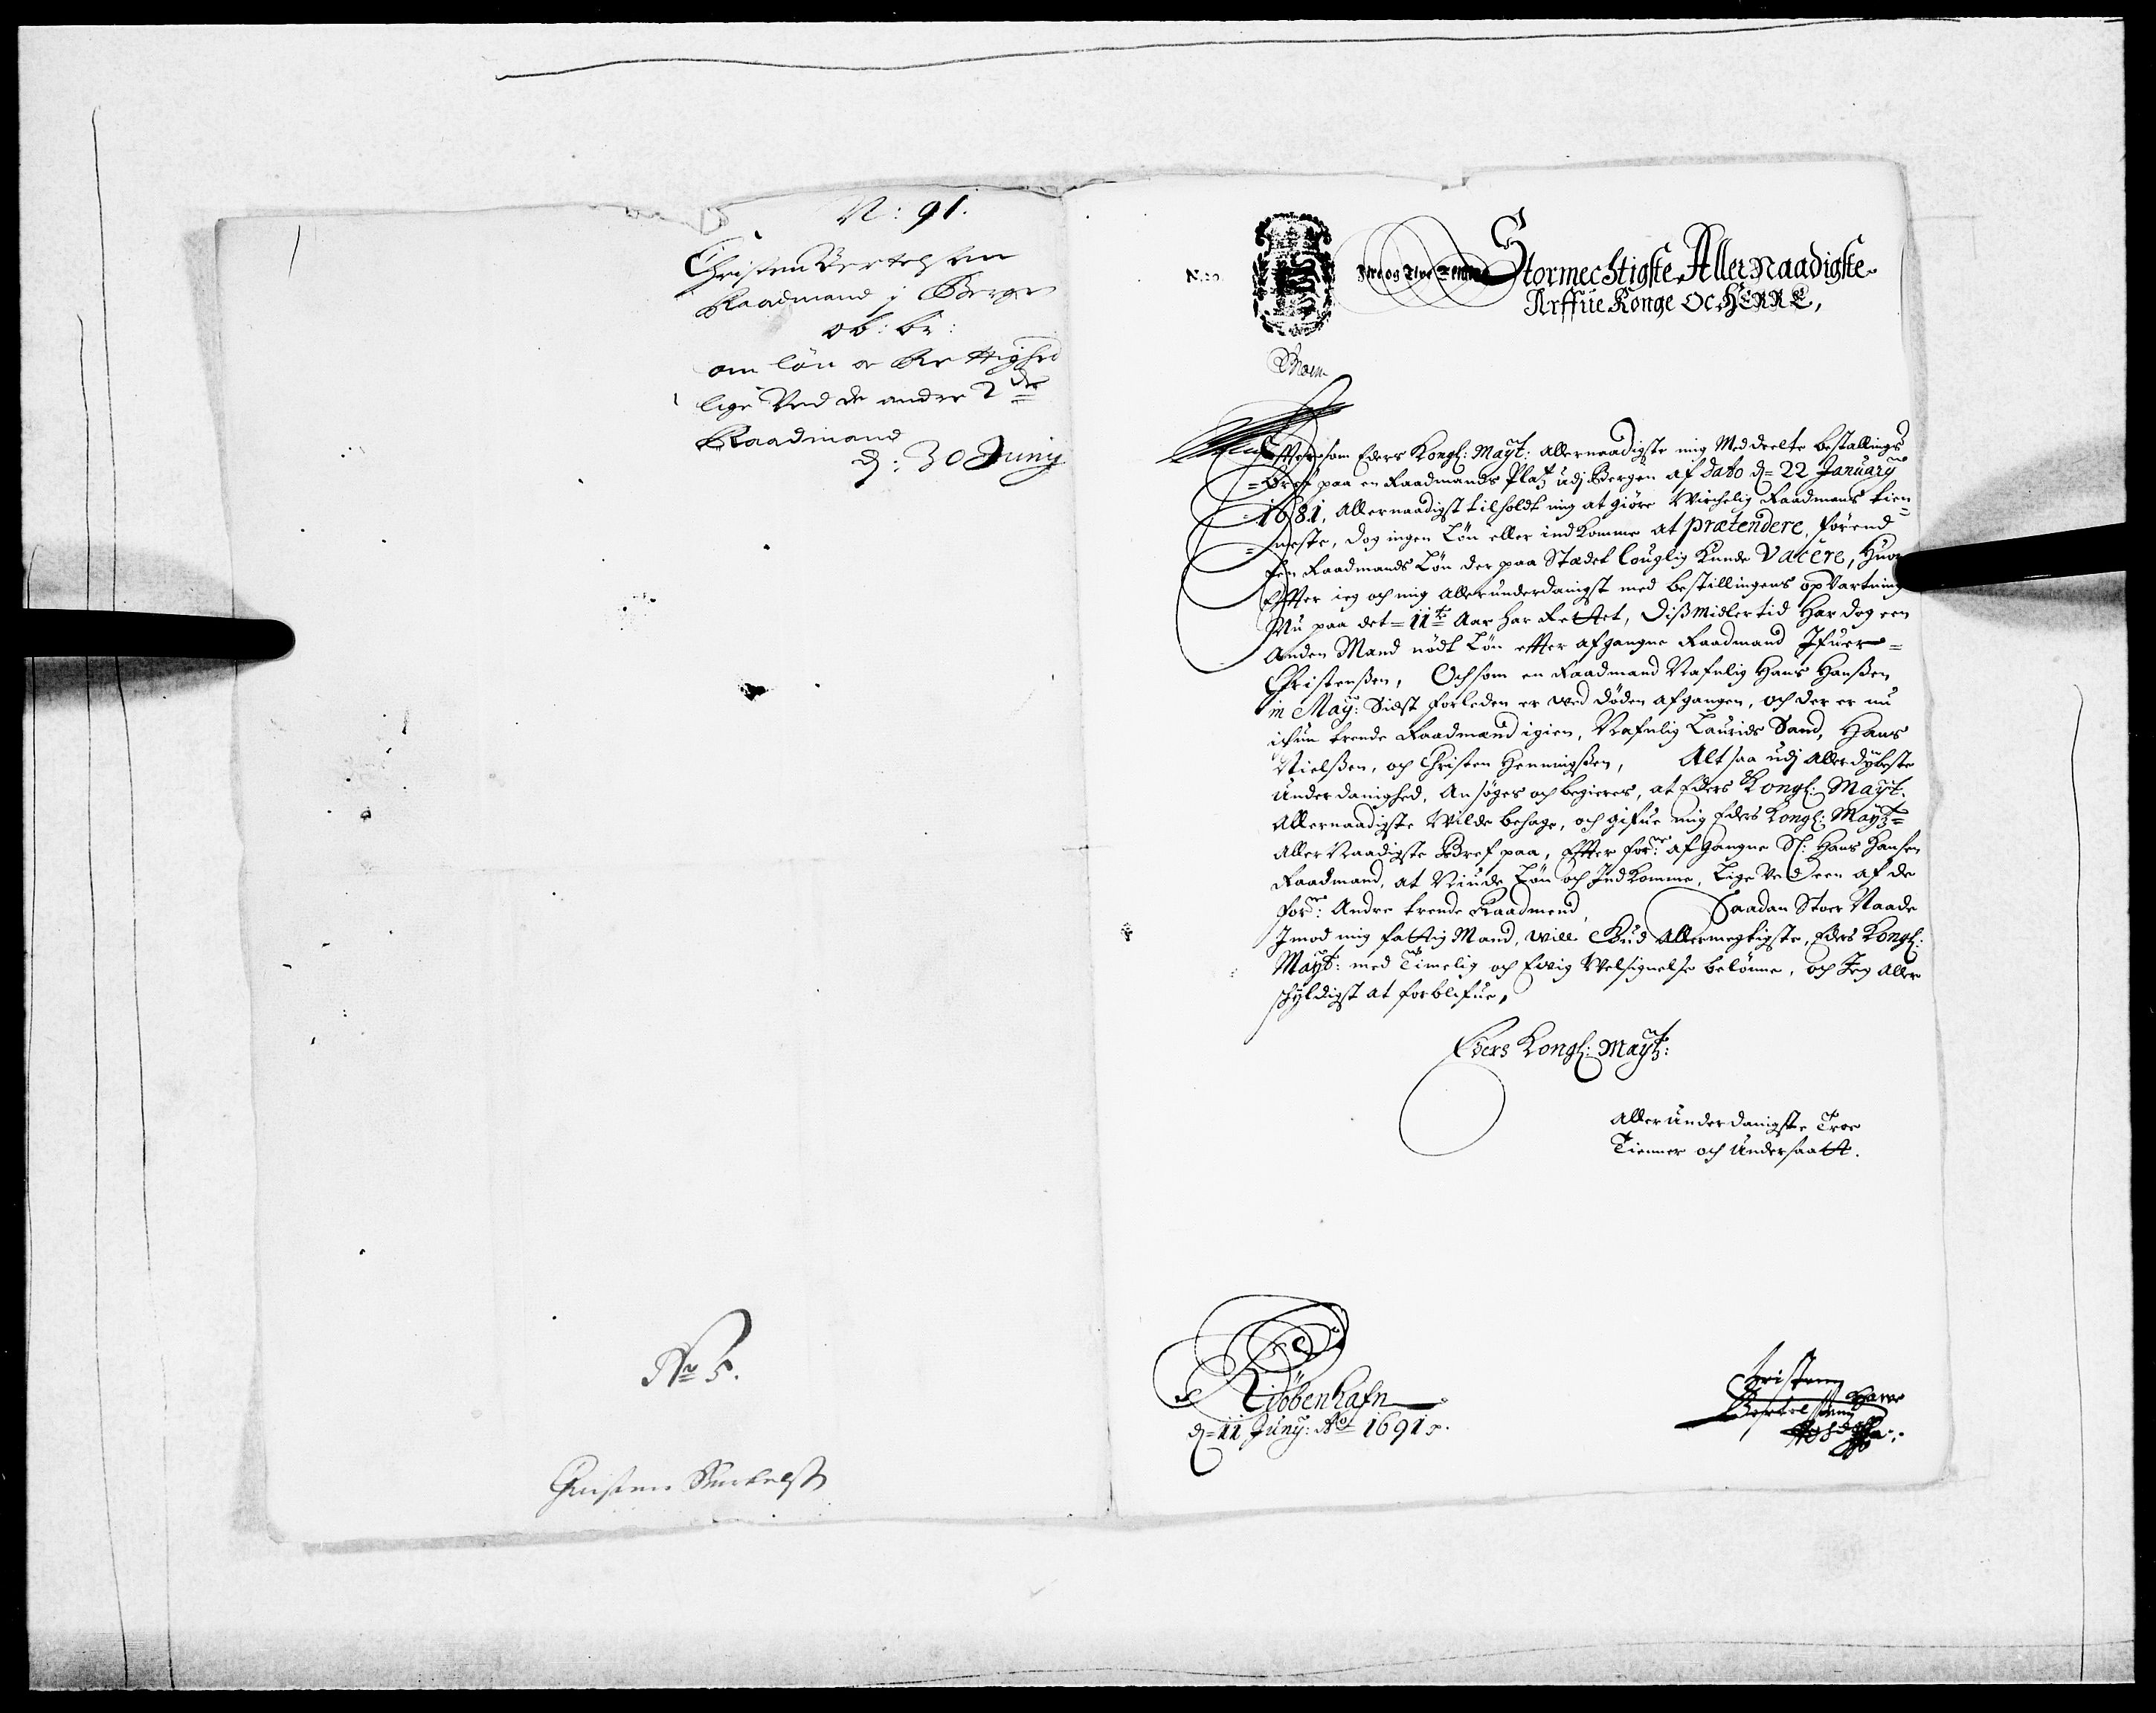 N: 91.
Christen Bertelsen
Raadmand i Bergen
ob: br:
om løn oc Rettighed
lige Ved de andre 2de
Raadmænd
d: 30 Junij
No 5.
Christen Bertelsen
Fire og Tive
Stormechtigste Allernaadigste
Arffue Konge Oc HERRE,
Eftersom Eders Kongl: Mayt: allernaadigste mig Meddeelte bestallings
= Bref paa en Raadmands Platz udj Bergen af dato d= 22 January
1681, Allernaadigst tilholdt mig at giøre Wirchelig Raadmans tien=
= neste, dog ingen Løn eller indkomme at prætendere, førend
een Raadmands Løn der paa Stædet louglig kunde Vacere, Huor
Effter ieg och mig allerunderdanigst med bestillingens opVartning
Nu paa det = 11te Aar har Rettet, Dissmidlertid Har dog een
Anden Mand nødt Løn effter afgangne Raadmand Ifuer =
Christenssen, Och som en Raadmand Nafnlig Hans Hanssen
in May: Sidst forleden er wed døden afgangen, och der er nu
ichun trende Raadmænd igien, Nafnlig Laurids Sand, Hans
Nielssen, och Christen Henningssen, Alt saa udj Allerdybeste
Underdanighed, Ansøges och begieres, at Eders Kongl: Mayt.
Allernaadigste Wilde behage, och gifue mig Eders Kongl: Maytz=
Aller Naadigste Bref paa, Effter forne: afgangne Sl: Hans Hansen
Raadmand, at Niude Løn och Indkomme, Lige Ved een af de
forne: Andre trende Raadmend, Saadan Stoer Naade
Imod mig fattig Mand, will Gud Allermegtigste, Eders Kongl:
Mayt: med Timelig och Ewig Welsignelse belønne, och Jeg Aller
schyldigst at forblifue,
Eders Kongl: Maytz:
Allerunderdanigste Troe
Tienner och Undersaatt.
Kiöbenhafn
d= 11 Junij: Ao 1691.
Christenn
Bertelssenn